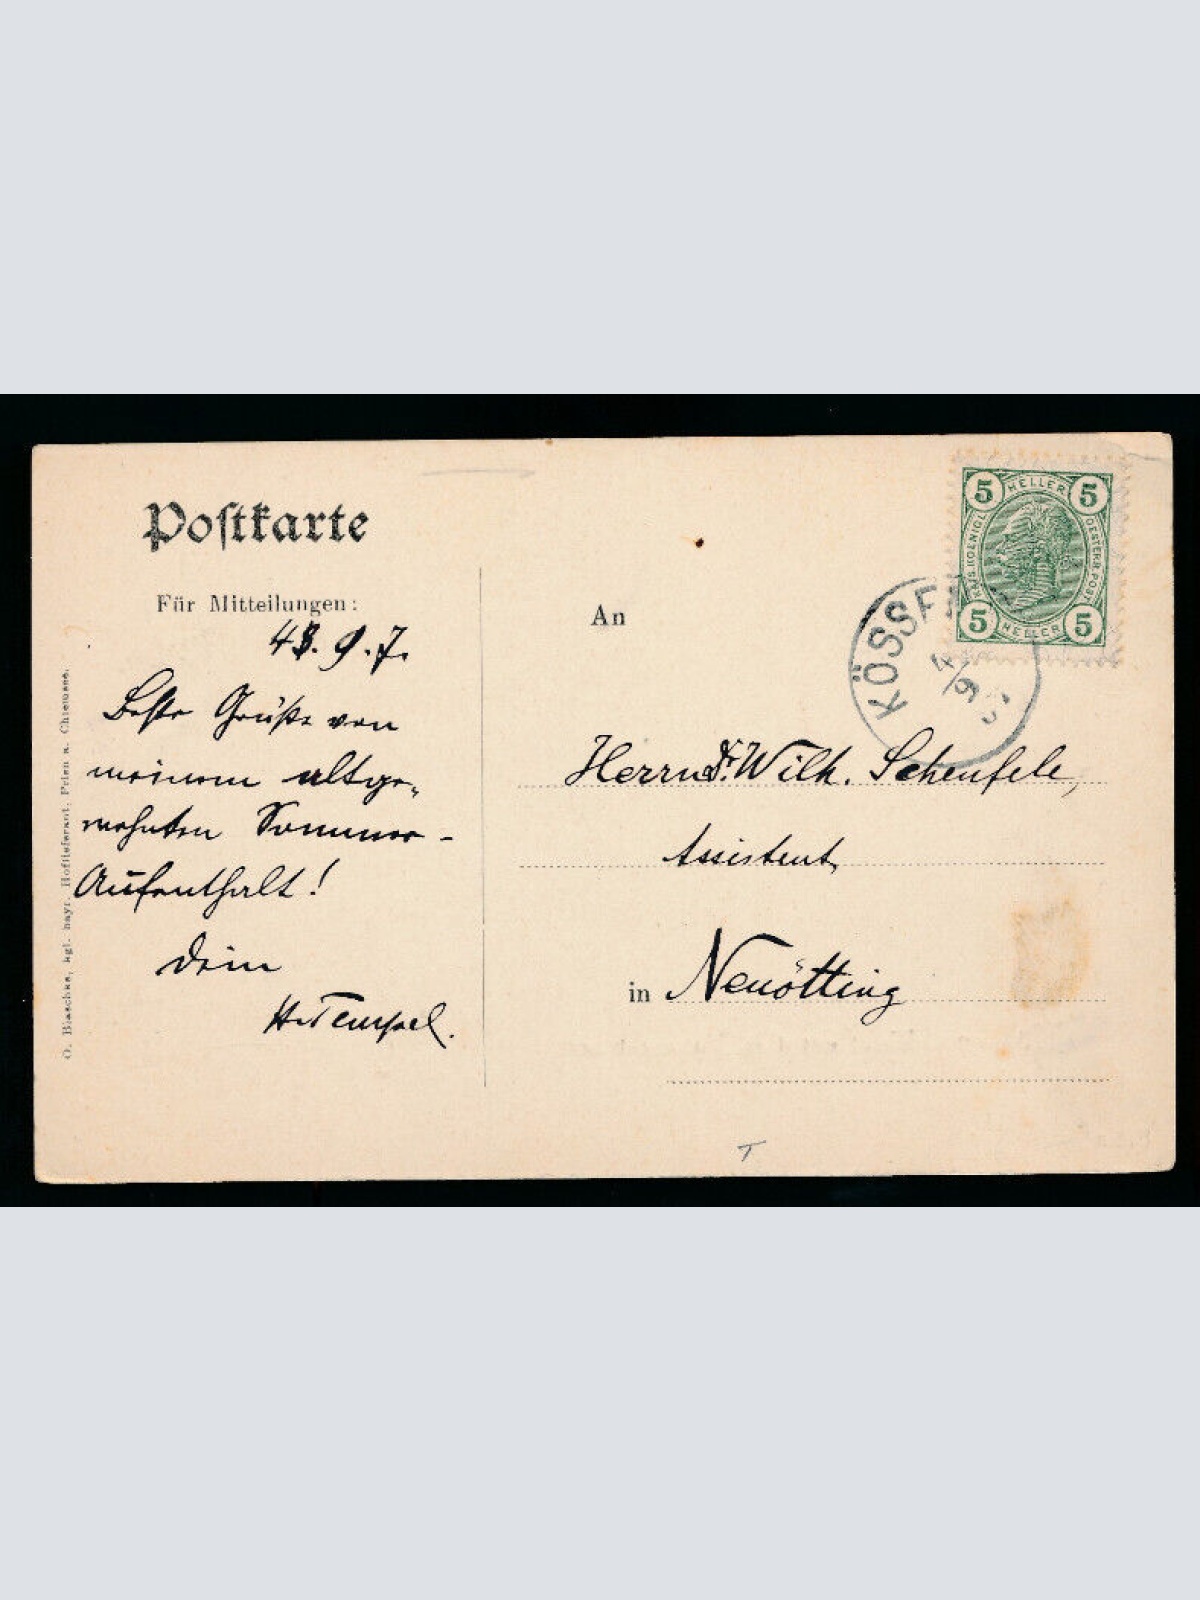 Postkarte
Für Mitteilungen:
4. 9. 7.
Beste Grüße von
meinem altge-
wohnten Sommer-
Aufenthalt!
Dein
H. Tempel.
O. Blaschke, kgl. bayr. Hoflieferant, Prien a. Chiemsee.
5 HELLER 5
KAIS. KOENIGL. OESTERR. POST
5 HELLER 5
KÖSSEN
4/9
An
Herrn Dr. Wilh. Scheufele,
Assistent,
in Neuötting
T